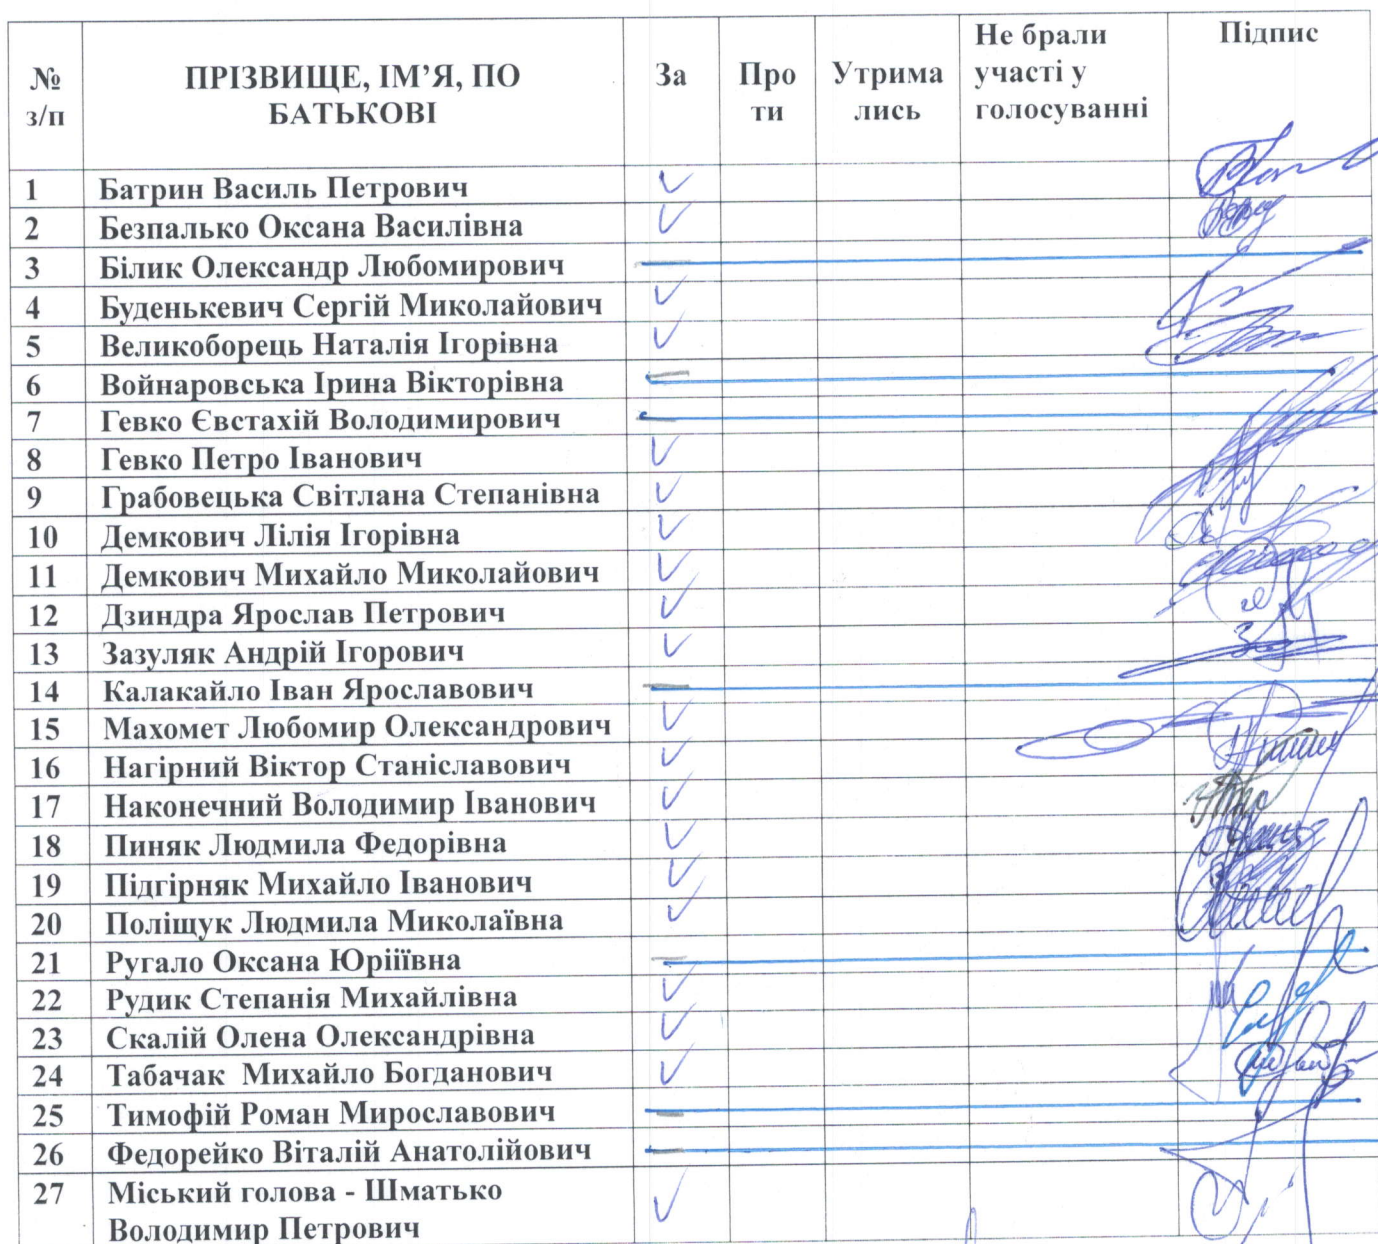 № з/п ПРІЗВИЩЕ, ІМ’Я, ПО БАТЬКОВІ За Про ти Утрима лись Не брали участі у голосуванні Підпис
1 Батрин Василь Петрович
2 Безпалько Оксана Василівна
3 Білик Олександр Любомирович
4 Буденькевич Сергій Миколайович
5 Великоборець Наталія Ігорівна
6 Войнаровська Ірина Вікторівна
7 Гевко Євстахій Володимирович
8 Гевко Петро Іванович
9 Грабовецька Світлана Степанівна
10 Демкович Лілія Ігорівна
11 Демкович Михайло Миколайович
12 Дзиндра Ярослав Петрович
13 Зазуляк Андрій Ігорович
14 Калакайло Іван Ярославович
15 Махомет Любомир Олександрович
16 Нагірний Віктор Станіславович
17 Наконечний Володимир Іванович
18 Пиняк Людмила Федорівна
19 Підгірняк Михайло Іванович
20 Поліщук Людмила Миколаївна
21 Ругало Оксана Юріїівна
22 Рудик Степанія Михайлівна
23 Скалій Олена Олександрівна
24 Табачак Михайло Богданович
25 Тимофій Роман Мирославович
26 Федорейко Віталій Анатолійович
27 Міський голова - Шматько
Володимир Петрович